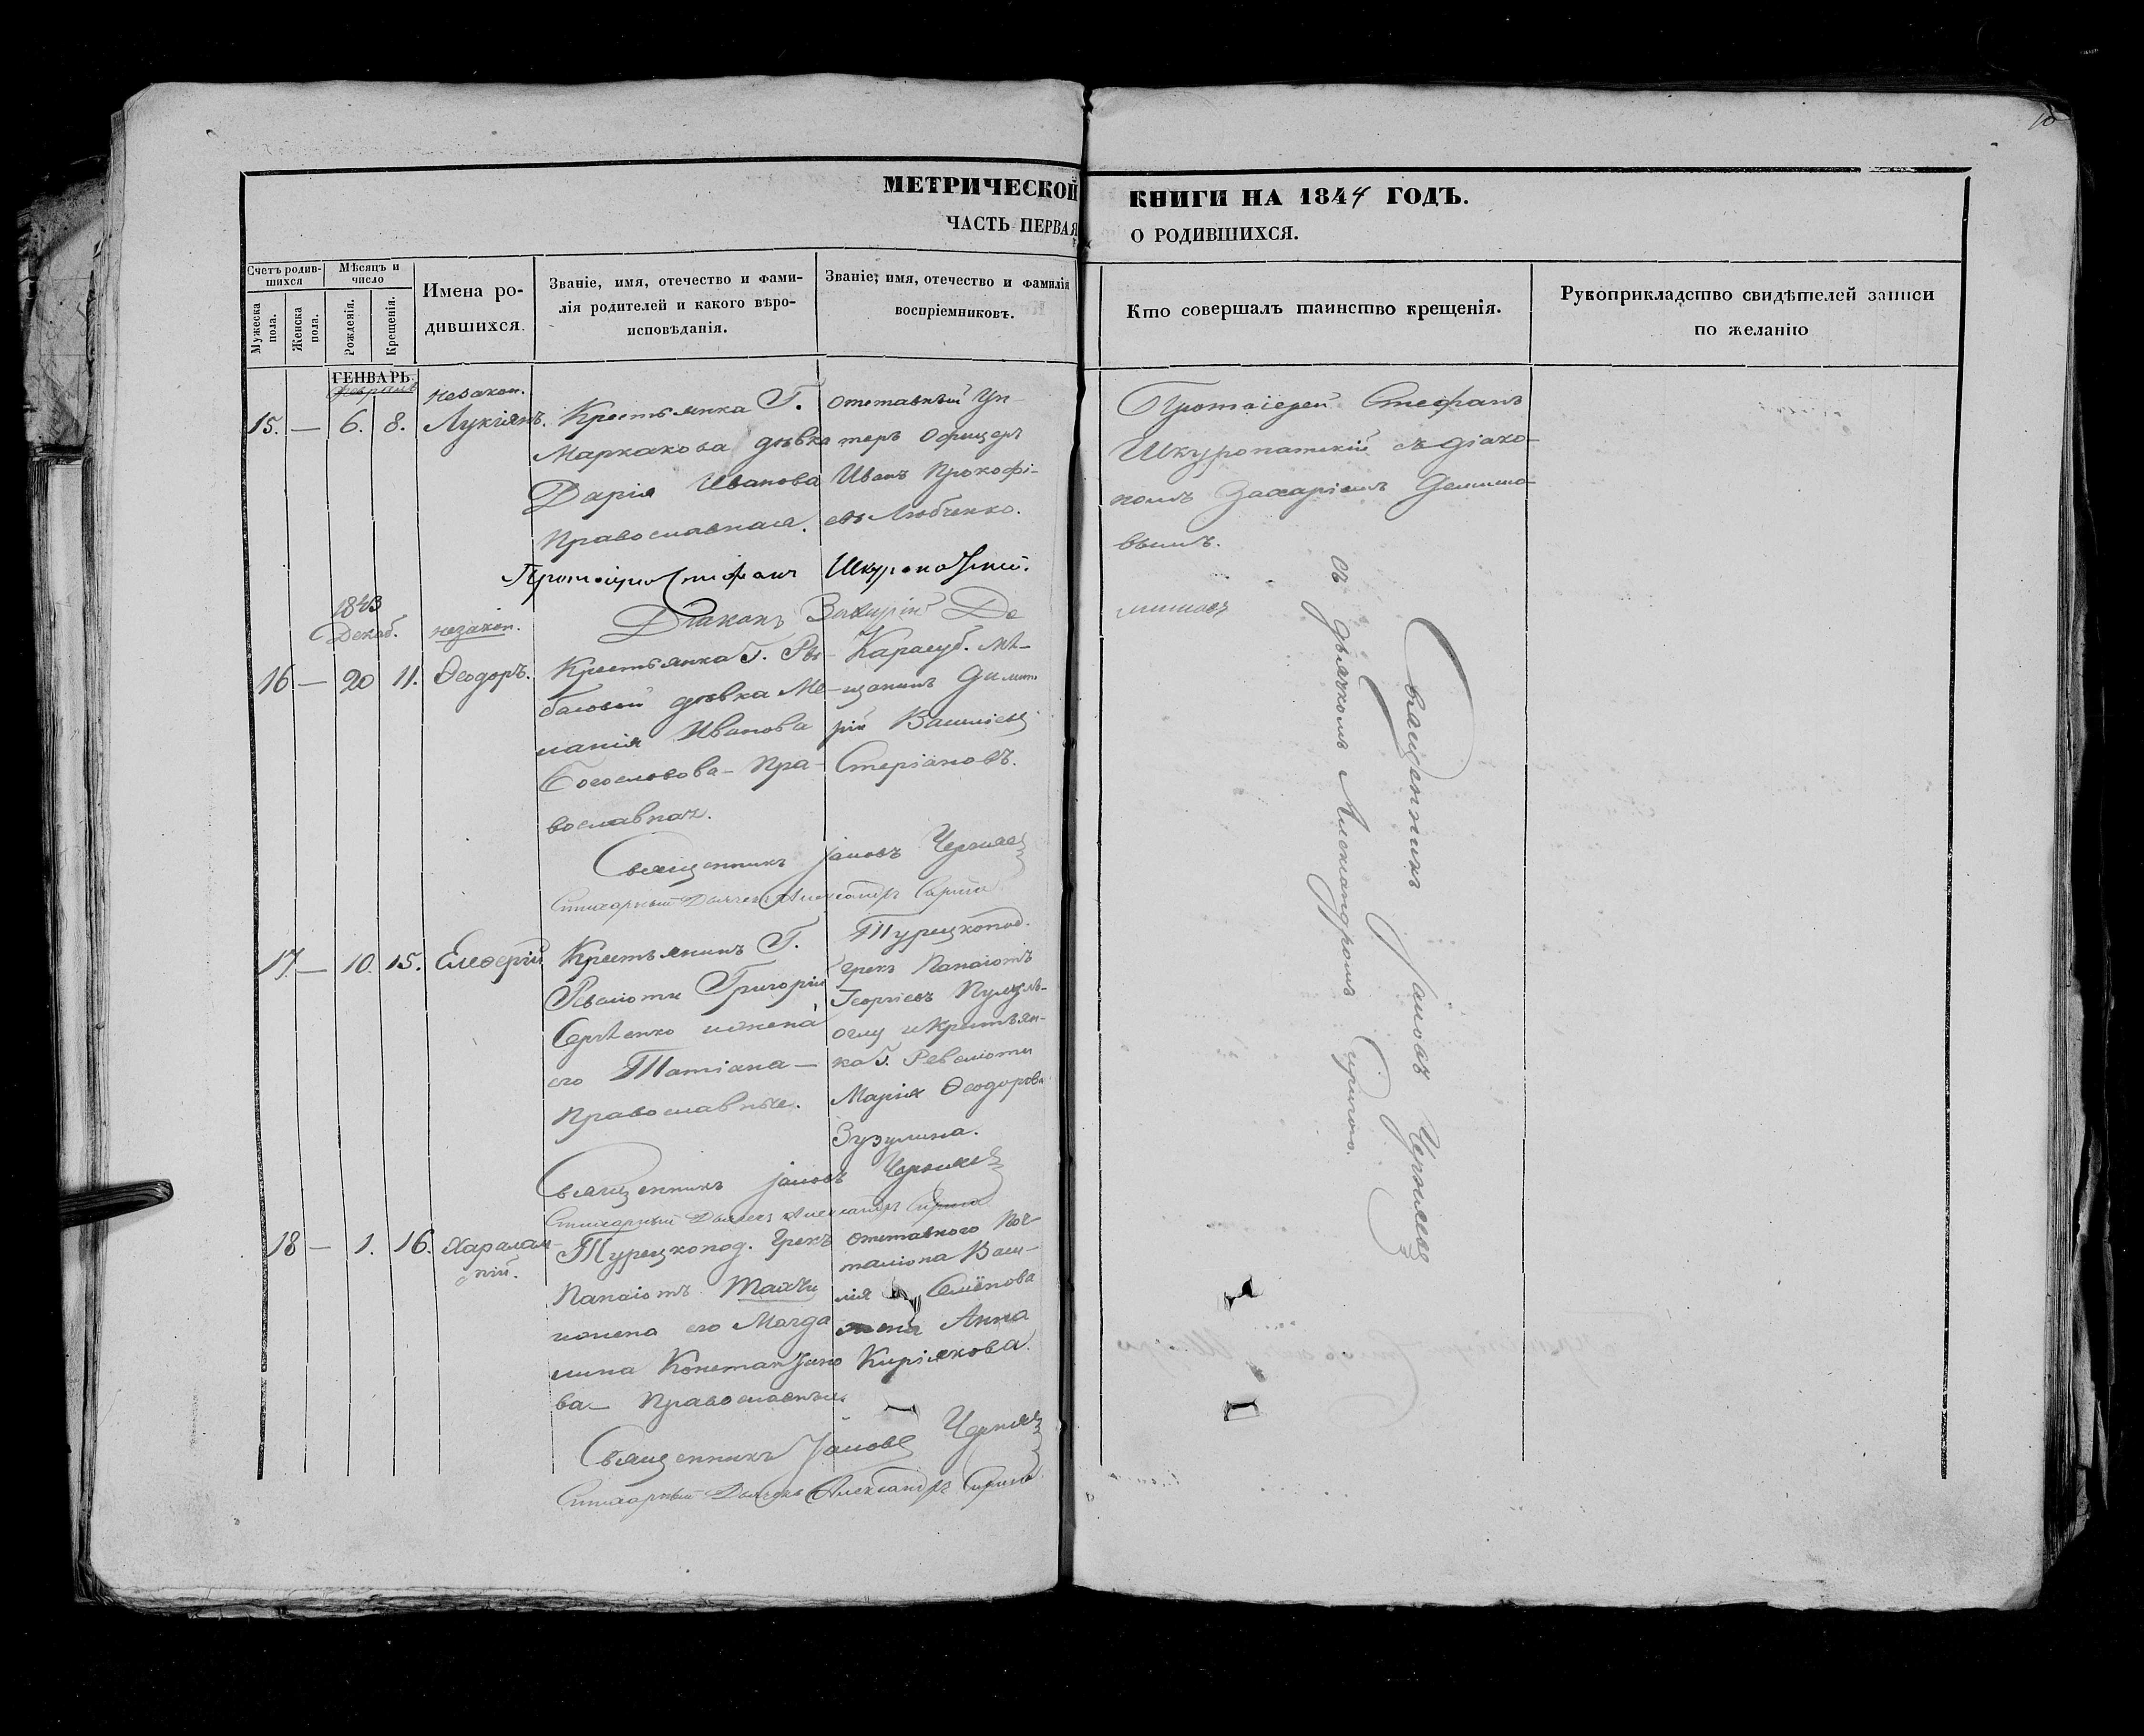 10
МЕТРИЧЕСКОЙ КНИГИ НА 1844 ГОДЪ.
ЧАСТЬ ПЕРВАЯ О РОДИВШИХСЯ.
Счетъ родившихся
Мужеска пола.
Женска пола.
Мѣсяцъ и число
Рожденія.
Крещенія.
Имена родившихся.
Званіе, имя, отечество и фамилія родителей и какого вѣроисповѣданія.
Званіе, имя, отечество и фамилія воспріемниковъ.
Кто совершалъ таинство крещенія.
Рукоприкладство свидѣтелей записи по желанію
ГЕНВАРЬ.
Февраль
15. — 6. 8.
незакон.
Лукіянъ.
Крестьянка Г.
Маркакова дѣвка
Дарія Иванова
Православная.
отставный Ун-
теръ Офицеръ
Иванъ Прокофі-
евъ Любченко.
Протоіерей Стефанъ
Шкуропатскій съ діако-
номъ Захаріемъ Демишо-
вымъ.
Стефанъ
Діаконъ Захарій Де
мишовъ
1843
Декаб.
16 — 20 11.
незакон.
Ѳеодоръ.
Крестьянка Г. Ры-
баловой дѣвка Ме-
ланія Иванова
Богословова - Пра-
вославная.
Карасуб. мѣ-
щанинъ Димит
рій
Стеріановъ.
Священникъ Іаковъ Черняев
Стихарный Дьячекъ Александръ
17. — 10. 15.
Елеѳерій
Крестьянинъ Г.
Ревеліоти Григорій
и жена
его Татіана —
Православные.
Турецкопод.
грекъ Панаіотъ
Георгіевъ
оглу и Крестьян-
ка Г. Ревеліоти
Марія Ѳеодорова
Зузулина.
Священникъ Іаковъ Черняев
Стихарный Дьячекъ Александръ
18 — 1. 16.
Харалам-
пій.
Турецкопод. Грекъ
Панаіотъ
и жена его Магда
лина Константино
ва — Православные.
отставного Поч-
таліона Васи-
лія Семёнова
жена Анна
Киріякова.
Священникъ Іаковъ Черняев
Стихарный Дьячекъ Александръ
Священникъ Іаковъ Черняевъ
съ дьячкомъ Александромъ